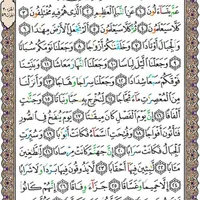 عَمَّ يَتَسَآءَلُونَ ١ عَنِ ٱلنَّبَإِ ٱلْعَظِيمِ ٢ ٱلَّذِى هُمْ فِيهِ مُخْتَلِفُونَ ٣
كَلَّا سَيَعْلَمُونَ ٤ ثُمَّ كَلَّا سَيَعْلَمُونَ ٥ أَلَمْ نَجْعَلِ ٱلْأَرْضَ مِهَٰدًا ٦
وَٱلْجِبَالَ أَوْتَادًا ٧ وَخَلَقْنَٰكُمْ أَزْوَٰجًا ٨ وَجَعَلْنَا نَوْمَكُمْ سُبَاتًا ٩
وَجَعَلْنَا ٱلَّيْلَ لِبَاسًا ١٠ وَجَعَلْنَا ٱلنَّهَارَ مَعَاشًا ١١ وَبَنَيْنَا
فَوْقَكُمْ سَبْعًا شِدَادًا ١٢ وَجَعَلْنَا سِرَاجًا وَهَّاجًا ١٣ وَأَنزَلْنَا
مِنَ ٱلْمُعْصِرَٰتِ مَآءً ثَجَّاجًا ١٤ لِّنُخْرِجَ بِهِۦ حَبًّا وَنَبَاتًا ١٥ وَجَنَّٰتٍ
أَلْفَافًا ١٦ إِنَّ يَوْمَ ٱلْفَصْلِ كَانَ مِيقَٰتًا ١٧ يَوْمَ يُنفَخُ فِى ٱلصُّورِ
فَتَأْتُونَ أَفْوَاجًا ١٨ وَفُتِحَتِ ٱلسَّمَآءُ فَكَانَتْ أَبْوَٰبًا ١٩ وَسُيِّرَتِ
ٱلْجِبَالُ فَكَانَتْ سَرَابًا ٢٠ إِنَّ جَهَنَّمَ كَانَتْ مِرْصَادًا ٢١ لِّلطَّٰغِينَ
مَـَٔابًا ٢٢ لَّٰبِثِينَ فِيهَآ أَحْقَابًا ٢٣ لَّا يَذُوقُونَ فِيهَا بَرْدًا وَلَا شَرَابًا
٢٤ إِلَّا حَمِيمًا وَغَسَّاقًا ٢٥ جَزَآءً وِفَاقًا ٢٦ إِنَّهُمْ كَانُوا۟